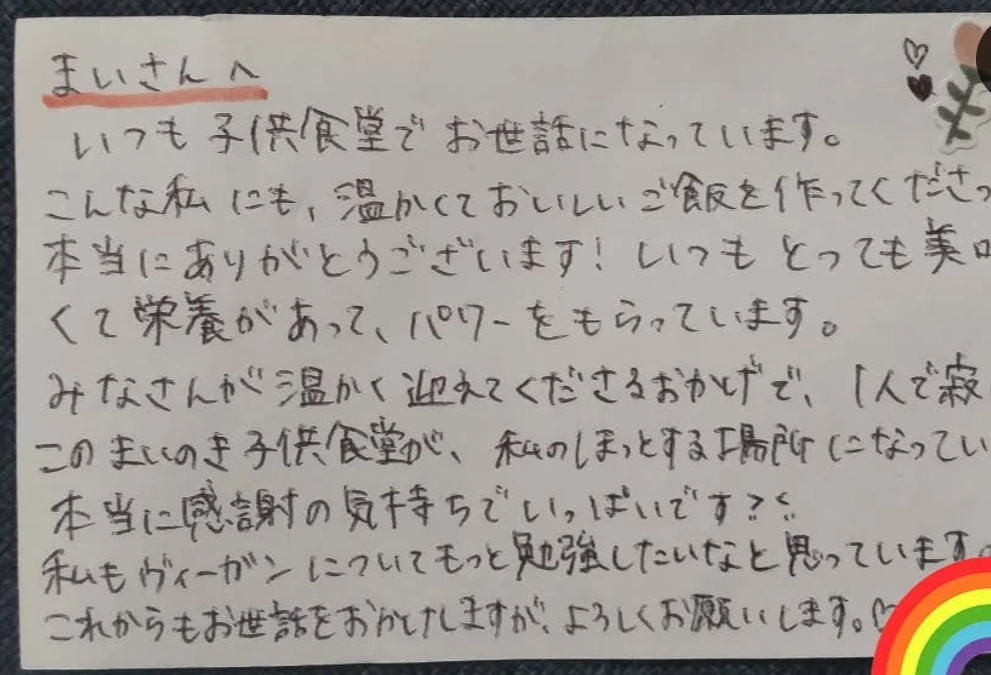 まいさんへ
いつも子供食堂でお世話になっています。
こんな私にも、温かくておいしいご飯を作ってくださっ
本当にありがとうございます！いつもとっても美味
くて栄養があって、パワーをもらっています。
みなさんが温かく迎えてくださるおかげで、1人で寂
このまいのき子供食堂が、私のほっとする場所になってい
本当に感謝の気持ちでいっぱいです
私もヴィーガンについてもっと勉強したいなと思っています。
これからもお世話をおかけしますが、よろしくお願いします。♡